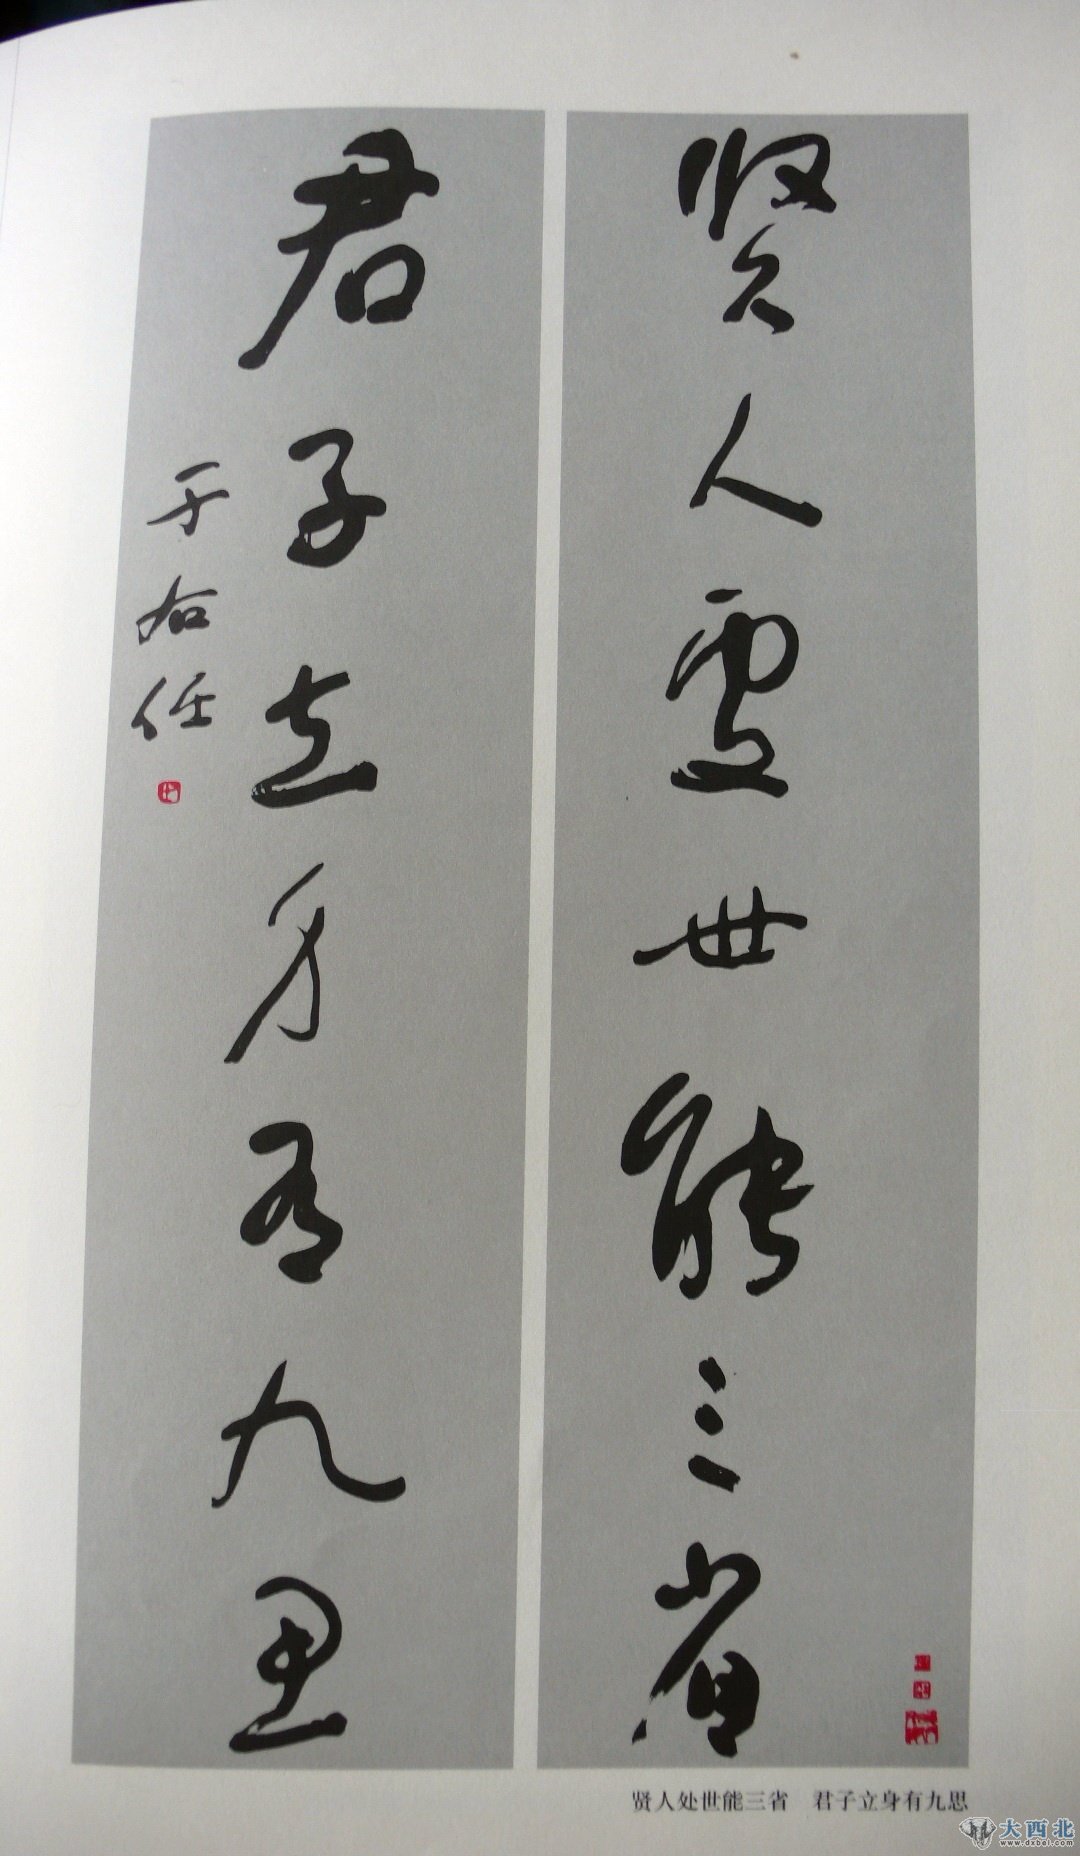 贤人处世能三省
君子立身有九思
于右任
贤人处世能三省 君子立身有九思
大西北
www.dxbei.com